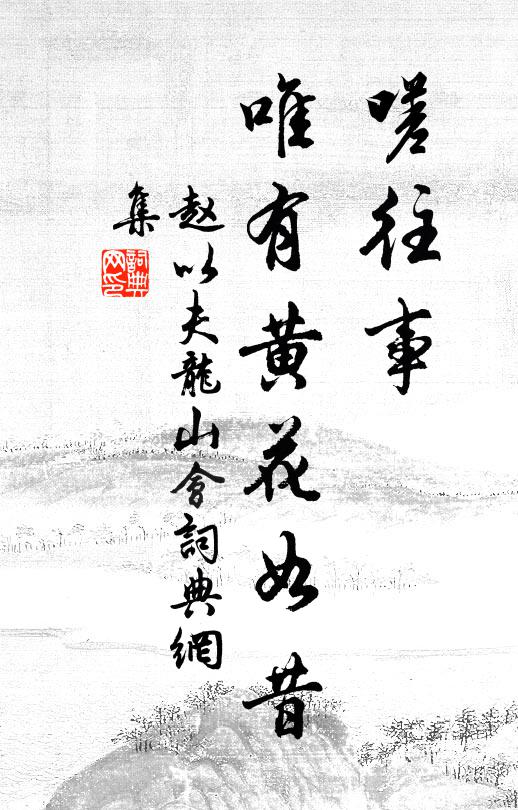 嗟往事
唯有黄花如昔
赵以夫龍山會詞典網
集
詞典
网印